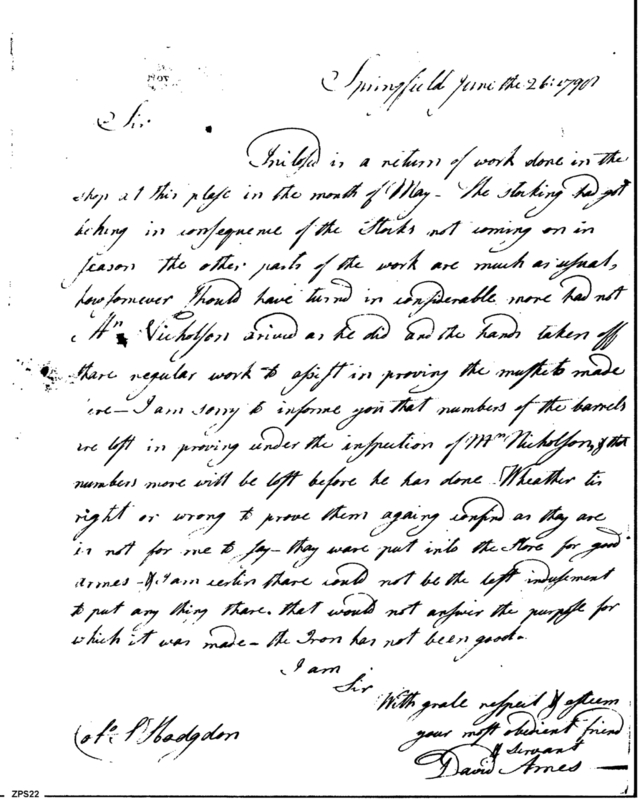 Springfield June the 26: 1798
Sir
Inclosed is a return of work done in the
shop at this plase in the month of May - The stocking has got
behing in consequence of the Stocks not coming on in
season the other parts of the work are much as usual,
howsomever should have turnd in considerable more had not
Mr. Nicholson arived as he did and the hands taken off
thare regular work to assist in proving the muskets made
here - I am sorry to informe you that numbers of the barrels
are lost in proving under the inspection of Mr. Nicholson, & that
numbers more will be lost before he has done. Wheather tis
right or wrong to prove them againg as thay are
is not for me to say - thay ware put into the store for good
armes - & I am certin thare could not be the lest indusement
to put any thing thare. that would not answer the purpose for
which it was made - the Iron has not been good.
I am
Sir
With grate respect & esteem
your most obedient friend
& servant
David Ames
Colo. S Hodgdon
ZPS22